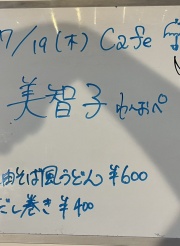 7/19(木) Cafe
美智子
わんおぺ
油そば風うどん ¥600
だし巻き ¥400